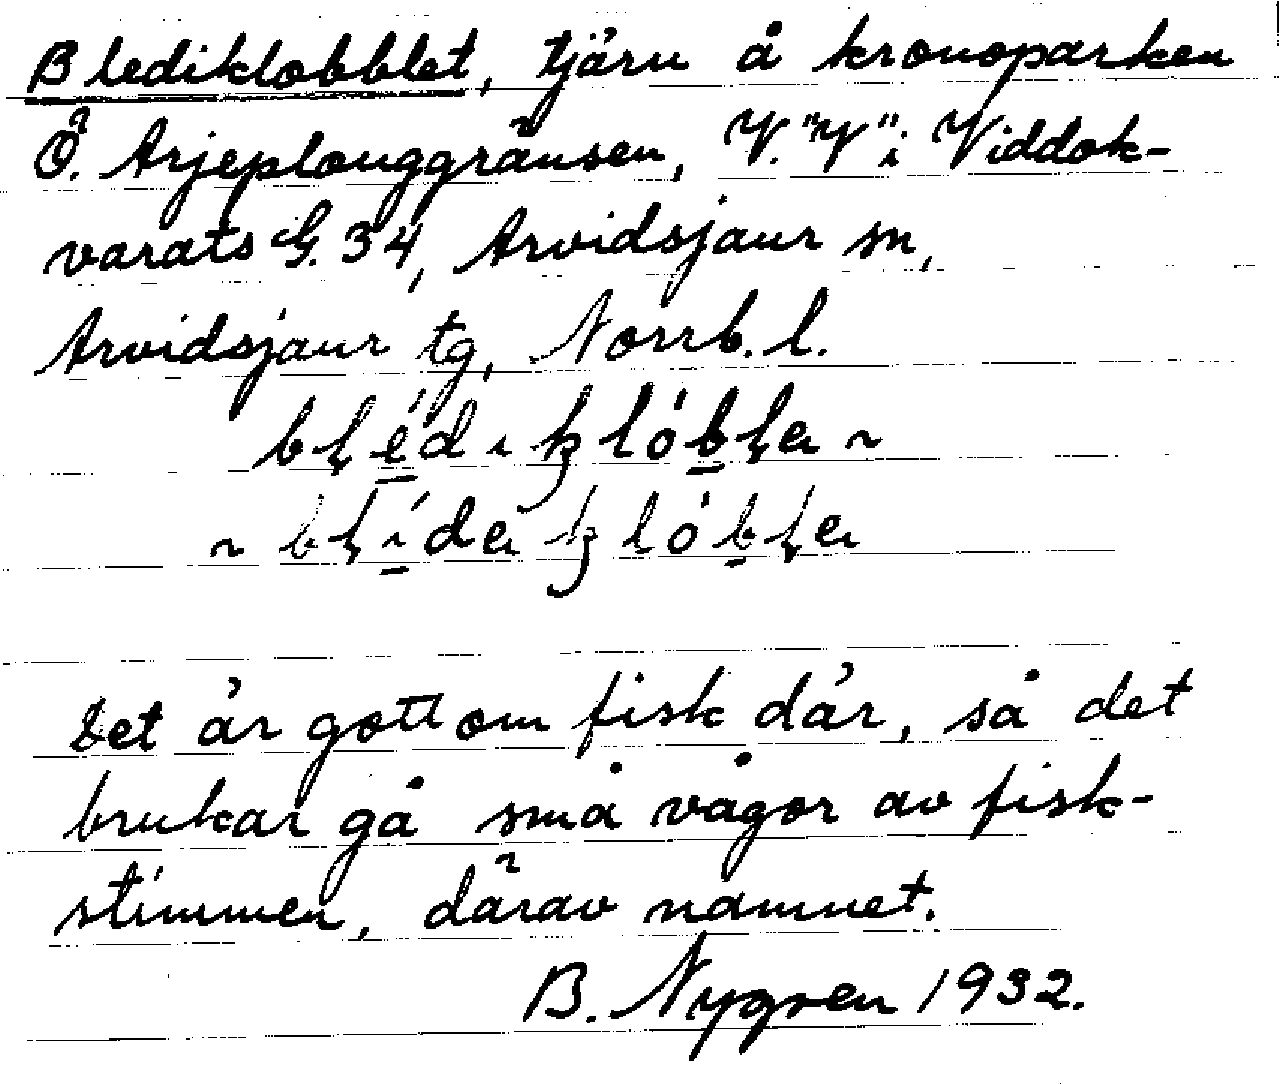 Blediklobblet, tjärn å kronoparken
Ö. Arjeplouggränsen, V. "V" i Viddok-
varats G. 34, Arvidsjaur sn,
Arvidsjaur tg, Norrb. l.
Det är gott om fisk där, så det
brukar gå små vågor av fisk-
stimmen, därav namnet.
B. Nygren 1932.